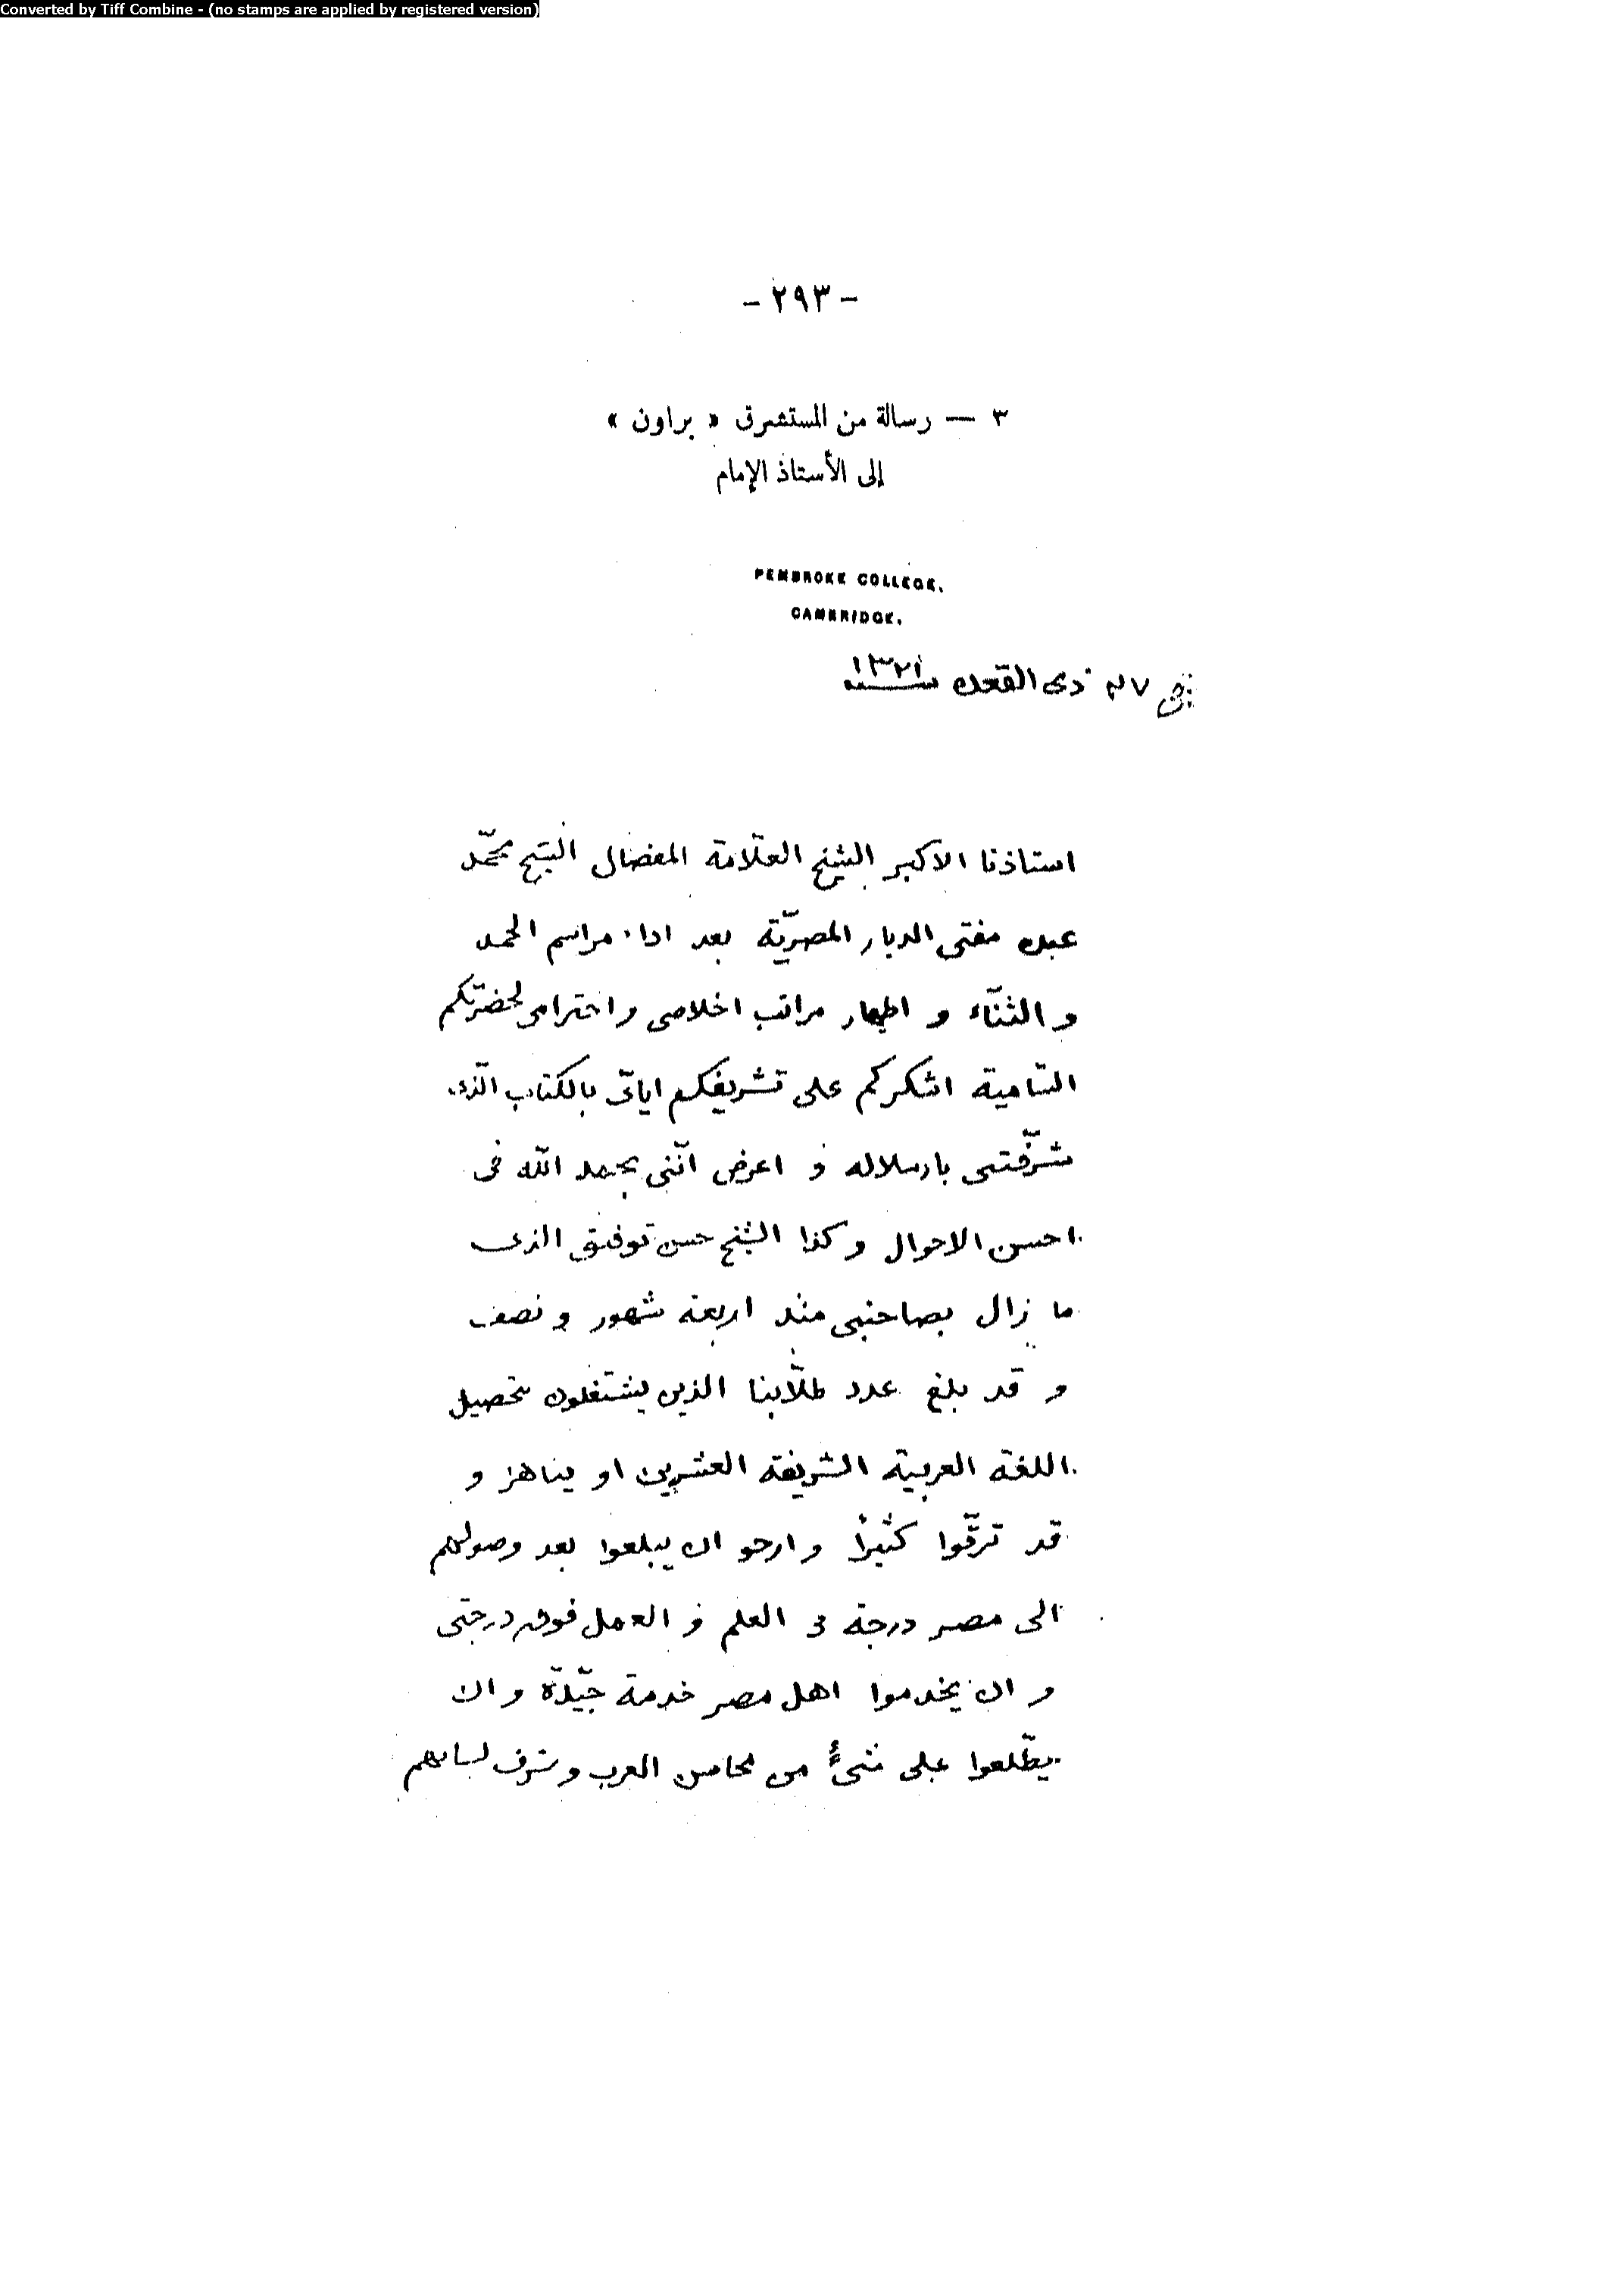 Converted by Tiff Combine - (no stamps are applied by registered version)
- ٢٩٣ -
٣ — رسالة من المستشرق « براون »
إلى الأستاذ الإمام
PEMBROKE COLLEGE,
CAMBRIDGE.
فى ٢٧ ذى القعده سنه ١٣٢١
استاذنا الاكبر الشيخ العلّامة المفضال الشيخ محمّد
عبده مفتى الديار المصريّة بعد اداء مراسم الحمد
و الثنآء و اظهار مراتب اخلاصى و احترامى لحضرتكم
السّامية اشكركم على تشريفكم ايّاى بالكتاب الّذى
شرّفتنى بارساله و اعرض انّنى بحمد اللّه فى
احسن الاحوال و كذا الشيخ حسن توفيق الذى
ما زال يصاحبنى منذ اربعة شهور و نصف
و قد بلغ عدد طلّابنا الذين يشتغلون بتحصيل
اللغة العربية الشريفة العشرين او يناهز و
قد ترقّوا كثيرًا و ارجو ان يبلغوا بعد وصولهم
الى مصر درجة فى العلم و العمل فوق درجتى
و ان يخدموا اهل مصر خدمة جيّدة و ان
يطّلعوا على شىءٍ من محاسن العرب و شرف لسانهم